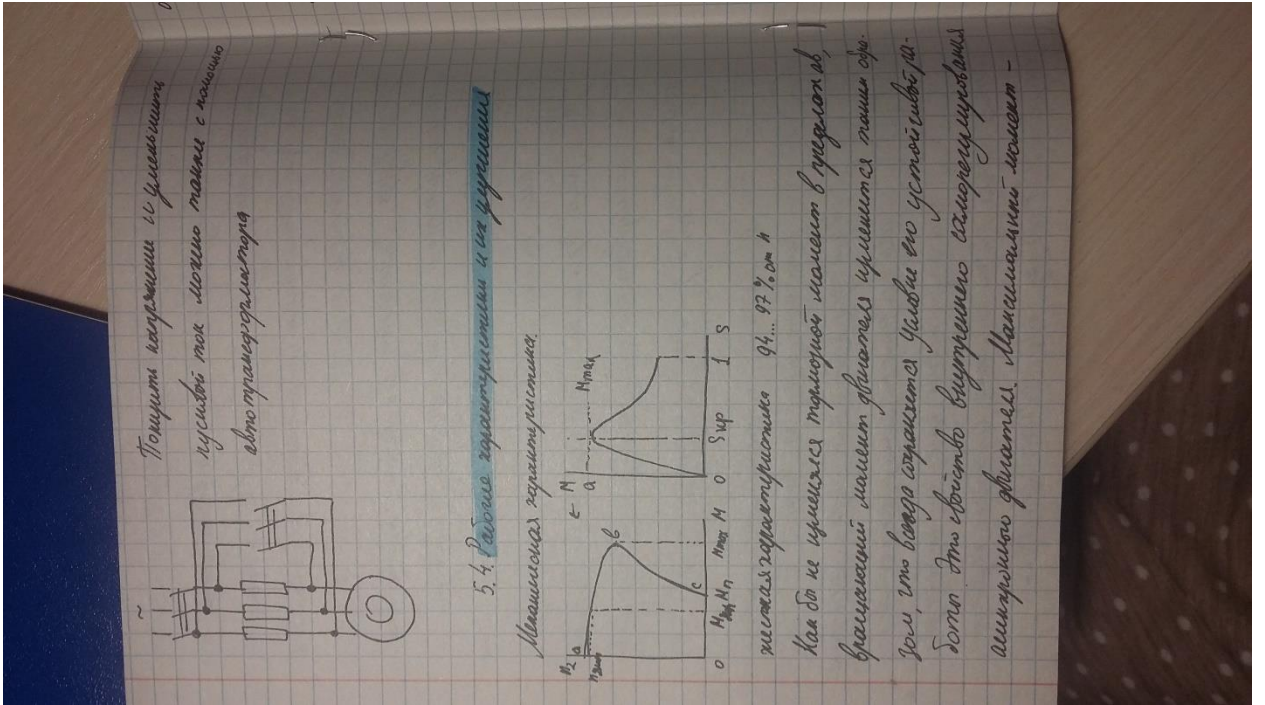 Понизить напряжение и уменьшить
пусковой ток можно также с помощью
автотрансформатора
~
5.4. Рабочие характеристики и их
Механическая характеристика.
n₂ a
b
c
0 Mп Mmax M
M
a
Mmax
0 Sкр 1 S
жесткая характеристика 94...97% от n
Как бы не изменялся тормозной момент в пределах ab,
вращающий момент двигателя изменится таким обра-
зом, что всегда сохраняется условие его устойчивой ра-
боты. Это свойство внутреннего саморегулирования
асинхронного двигателя. Максимальный момент –